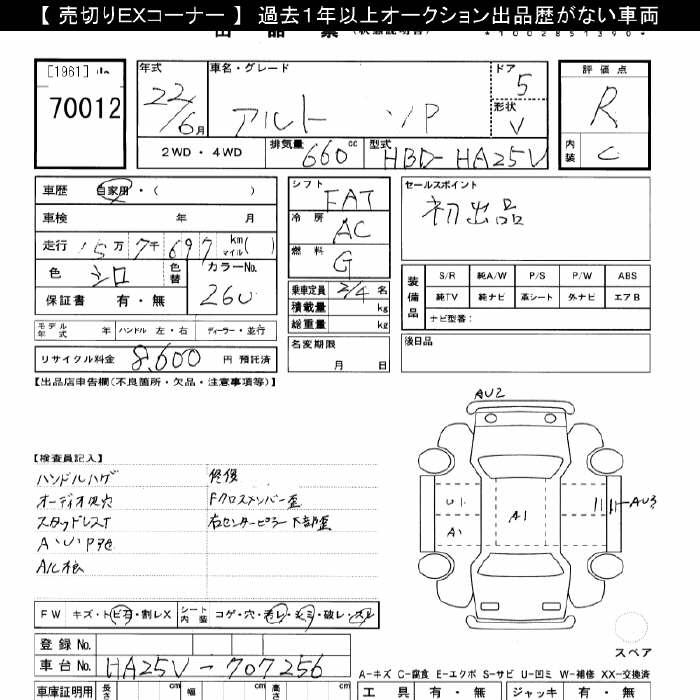 【 売切りEXコーナー 】 過去１年以上オークション出品歴がない車両
[1961]
70012
年式
22/6月
車名・グレード
アルト VP
ドア
5
形状
V
評価点
R
内装
C
2WD ・ 4WD
排気量 660 cc
型式 HBD-HA25V
車歴 自家用・( )
車検 年 月
走行 15万7千697 km マイル( )
色 シロ
色替
カラーNo.
26U
保証書 有・無
モデル年式 年 ハンドル 左・右 ディーラー・並行
リサイクル料金 8,600 円 預託済
シフト
FAT
冷房
AC
燃料
G
乗車定員 2/4 名
積載量 kg
総重量 kg
名変期限
月 日
セールスポイント
初出品
装備品
S/R 純A/W P/S P/W ABS
純TV 純ナビ 革シート 外ナビ エアB
ナビ型番：
後日品
【出品店申告欄(不良箇所・欠品・注意事項等)】
【検査員記入】
ハンドルハゲ
オーディオ欠穴
スタッドレスT
A・U・P色
修復
Fクロスメンバー歪
右センターピラー下部歪
AU2
U1
A1
A1
AU3
FW キズ・トビ石・割レX
シート内装 コゲ・穴・汚レ・シミ・破レ・スレ
登録No.
車台No. HA25V-707256
スペア
A－キズ C－腐食 E－エクボ S－サビ U－凹ミ W－補修 XX－交換済
車庫証明用 長さ cm 幅 cm 高さ cm
工具 有・無 ジャッキ 有・無